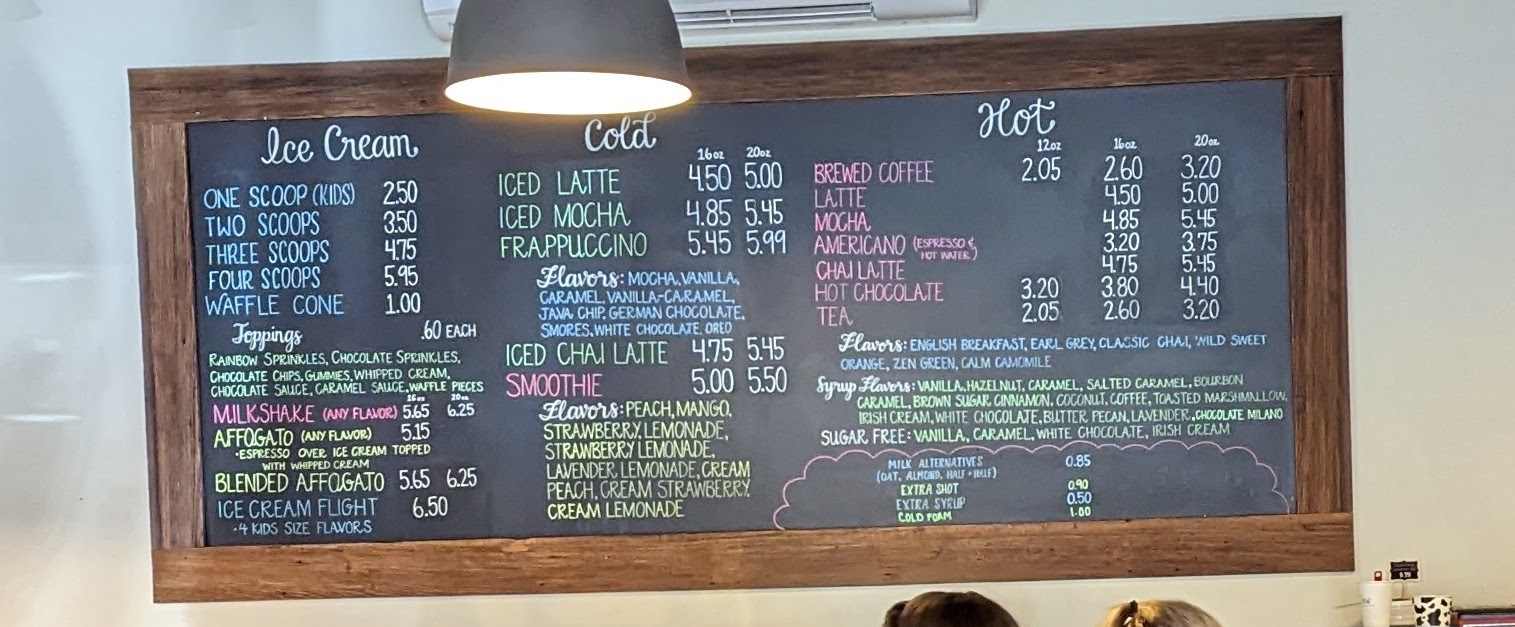 Ice Cream
ONE SCOOP (KIDS) 2.50
TWO SCOOPS 3.50
THREE SCOOPS 4.75
FOUR SCOOPS 5.95
WAFFLE CONE 1.00
Toppings .60 EACH
RAINBOW SPRINKLES, CHOCOLATE SPRINKLES,
CHOCOLATE CHIPS, GUMMIES, WHIPPED CREAM,
CHOCOLATE SAUCE, CARAMEL SAUCE, WAFFLE PIECES
16oz 20oz
MILKSHAKE (ANY FLAVOR) 5.65 6.25
AFFOGATO (ANY FLAVOR) 5.15
•ESPRESSO OVER ICE CREAM TOPPED
WITH WHIPPED CREAM
BLENDED AFFOGATO 5.65 6.25
ICE CREAM FLIGHT 6.50
•4 KIDS SIZE FLAVORS
Cold
16oz 20oz
ICED LATTE 4.50 5.00
ICED MOCHA 4.85 5.45
FRAPPUCCINO 5.45 5.99
Flavors: MOCHA, VANILLA,
CARAMEL, VANILLA-CARAMEL,
JAVA CHIP, GERMAN CHOCOLATE,
SMORES, WHITE CHOCOLATE, OREO
ICED CHAI LATTE 4.75 5.45
SMOOTHIE 5.00 5.50
Flavors: PEACH, MANGO,
STRAWBERRY, LEMONADE,
STRAWBERRY LEMONADE,
LAVENDER LEMONADE, CREAM
PEACH, CREAM STRAWBERRY
CREAM LEMONADE
Hot
12oz 16oz 20oz
BREWED COFFEE 2.05 2.60 3.20
LATTE 4.50 5.00
MOCHA 4.85 5.45
AMERICANO (ESPRESSO & HOT WATER) 3.20 3.75
CHAI LATTE 4.75 5.45
HOT CHOCOLATE 3.20 3.80 4.40
TEA 2.05 2.60 3.20
Flavors: ENGLISH BREAKFAST, EARL GREY, CLASSIC CHAI, WILD SWEET
ORANGE, ZEN GREEN, CALM CAMOMILE
Syrup Flavors: VANILLA, HAZELNUT, CARAMEL, SALTED CARAMEL, BOURBON
CARAMEL, BROWN SUGAR CINNAMON, COCONUT, COFFEE, TOASTED MARSHMALLOW,
IRISH CREAM, WHITE CHOCOLATE, BUTTER PECAN, LAVENDER, CHOCOLATE MILANO
SUGAR FREE: VANILLA, CARAMEL, WHITE CHOCOLATE, IRISH CREAM
MILK ALTERNATIVES 0.85
(OAT, ALMOND, HALF + HALF)
EXTRA SHOT 0.90
EXTRA SYRUP 0.50
COLD FOAM 1.00